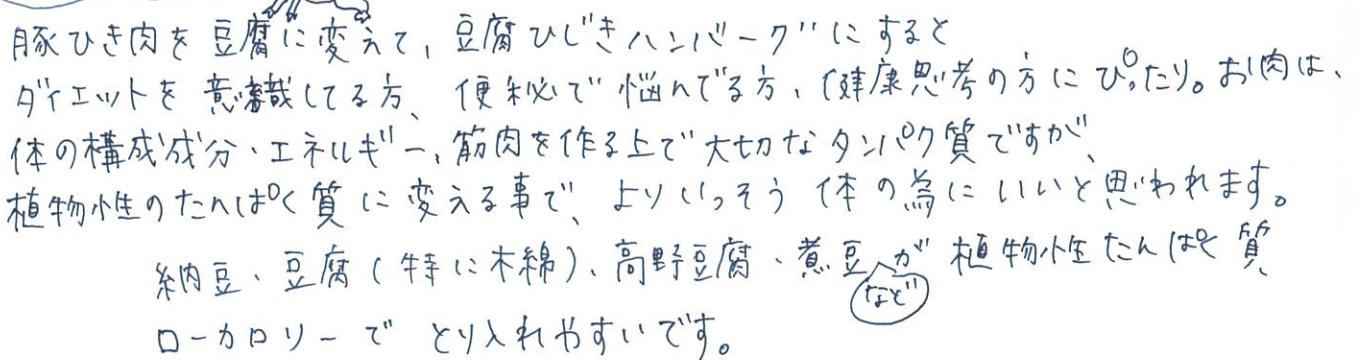 豚ひき肉を豆腐に変えて、豆腐ひじきハンバーグにすると
ダイエットを意識してる方、便秘で悩んでる方、健康思考の方にぴったり。お肉は、
体の構成成分・エネルギー、筋肉を作る上で大切なタンパク質ですが、
植物性のたんぱく質に変える事で、よりいっそう体の為にいいと思われます。
納豆、豆腐(特に木綿)、高野豆腐、煮豆などが植物性たんぱく質
ローカロリーでとり入れやすいです。